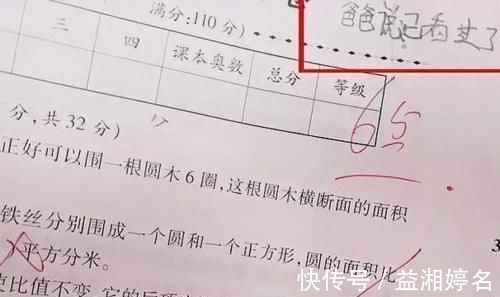 满分:110分)
爸爸说已看过了
三 四 课本奥数 总分 等级
65
分,共32分)
正好可以围一根圆木6圈,这根圆木横断面的面积
铁丝分别围成一个圆和一个正方形,圆的面积比
平方分米。
比值不变,它的后项
快传号/益湘婷名